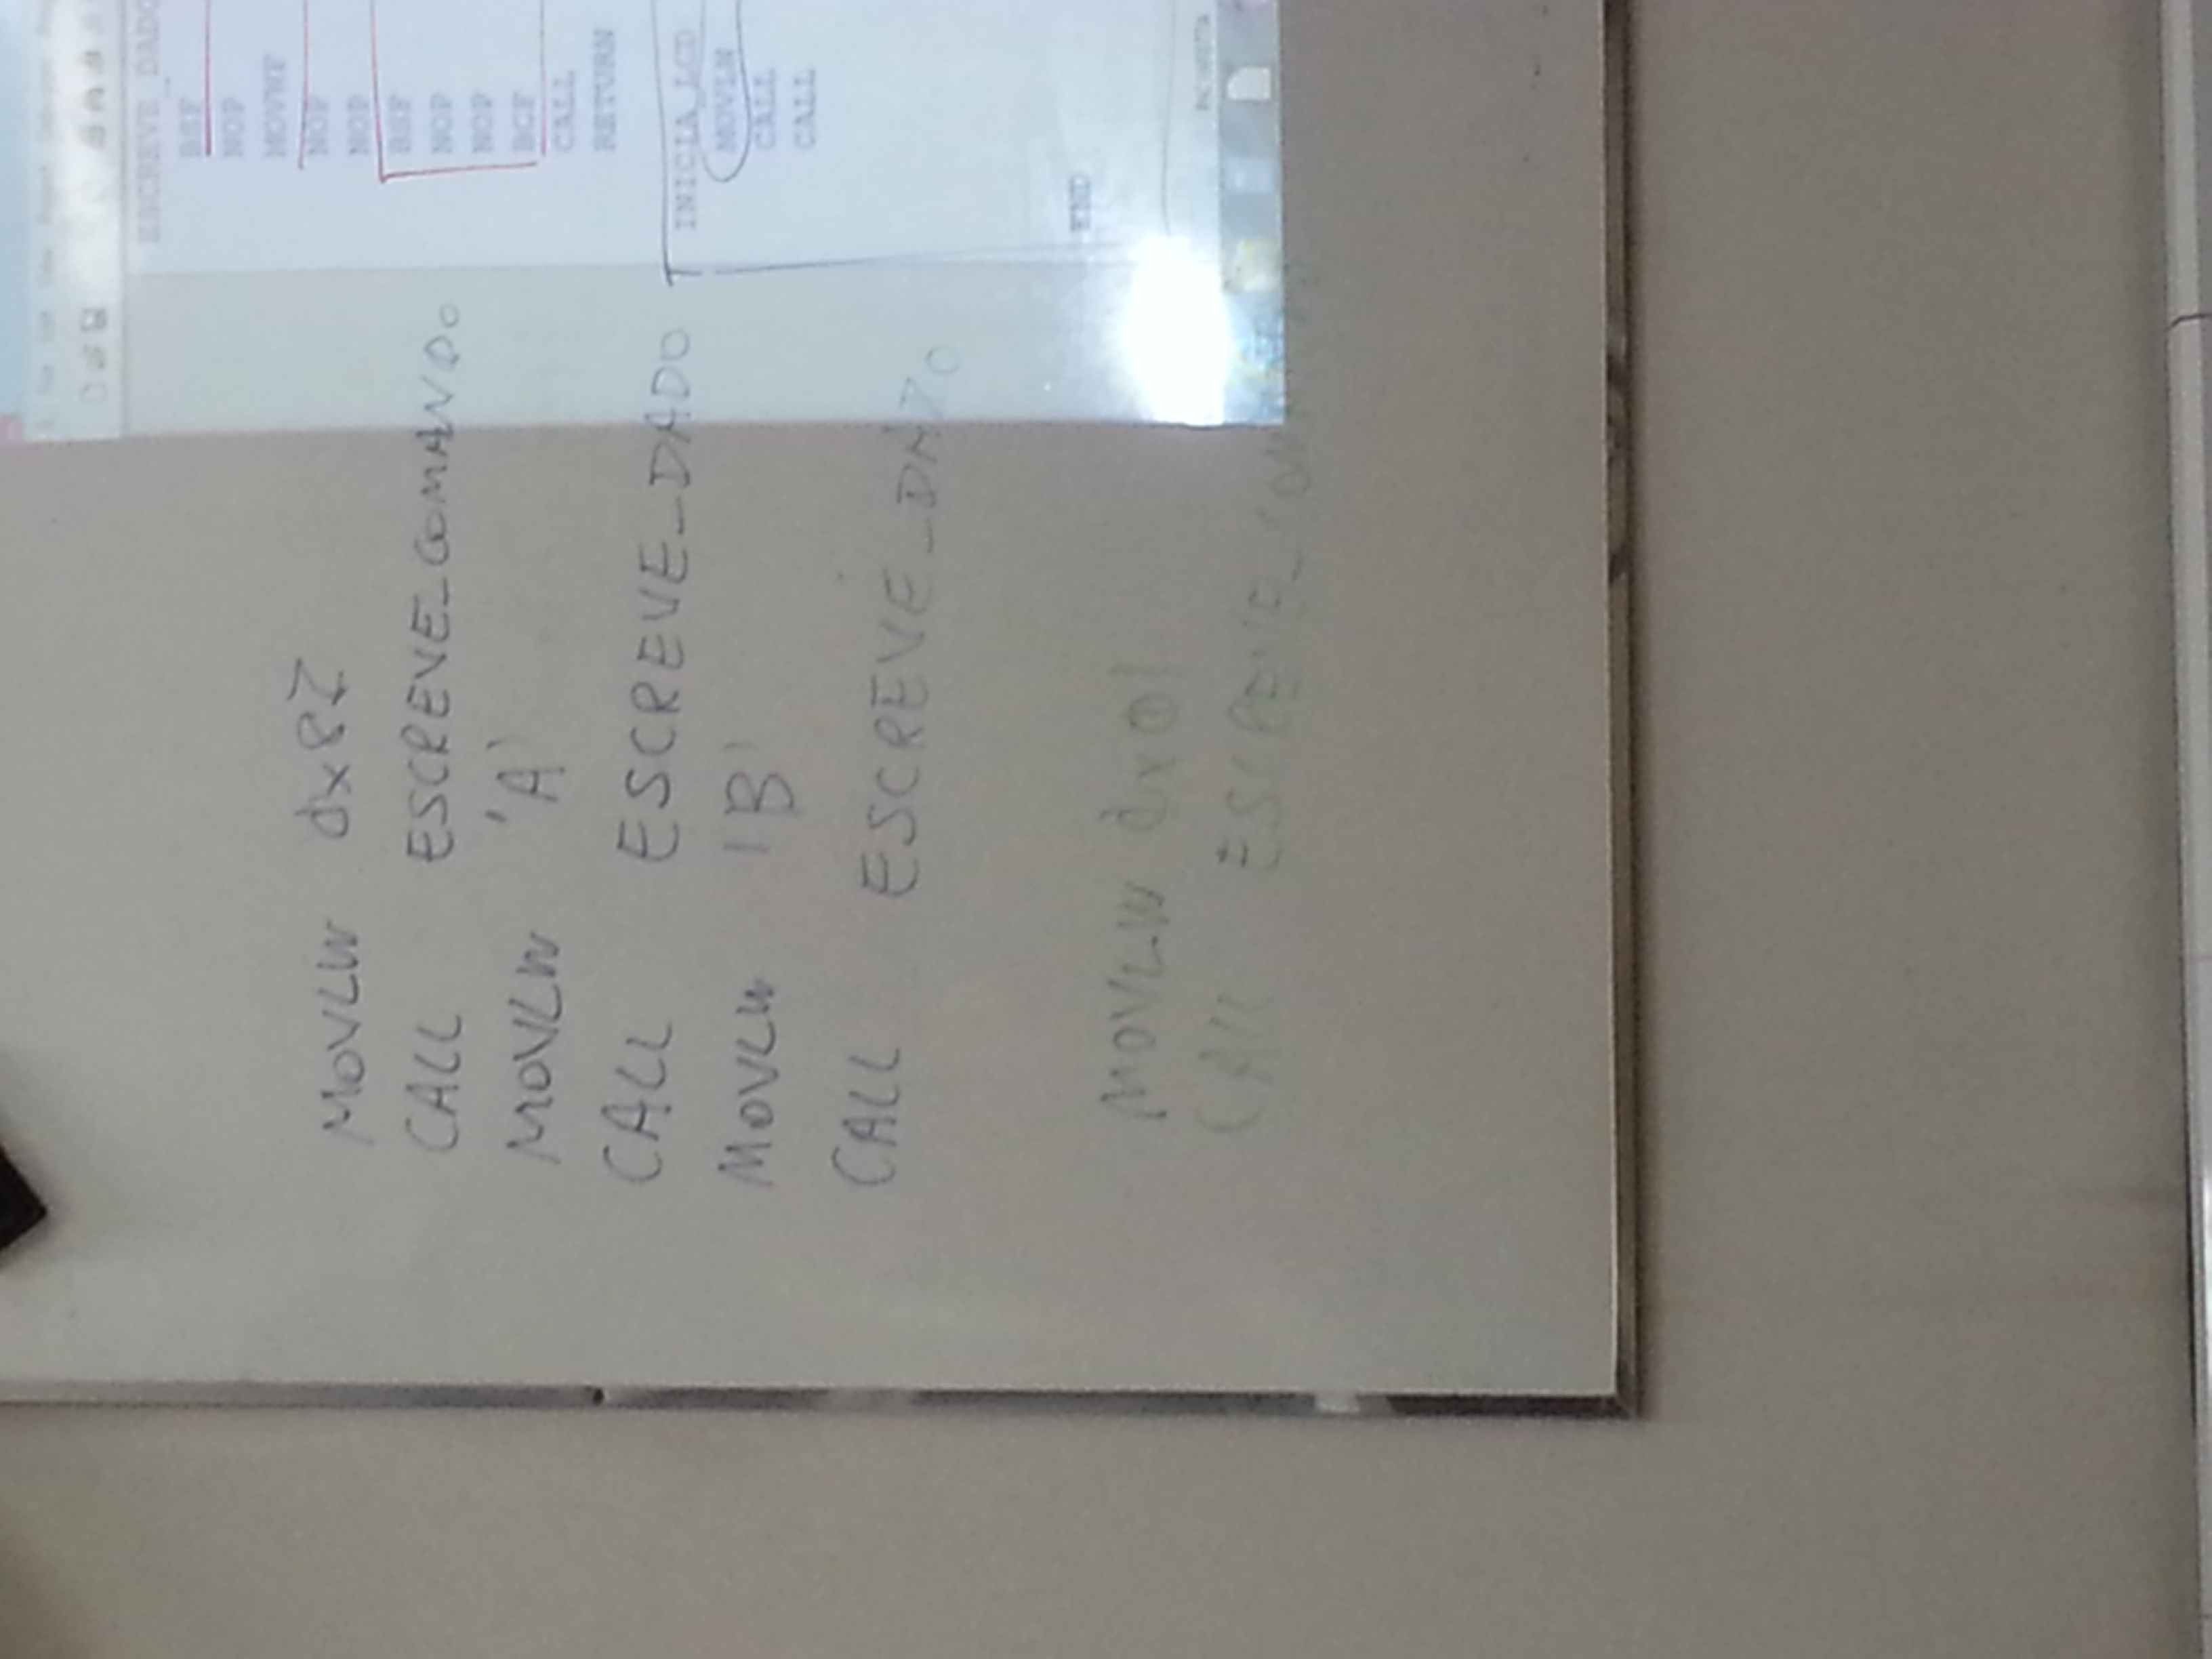 MOVLW 0x87
CALL ESCREVE_COMANDO
MOVLW 'A'
CALL ESCREVE_DADO
MOVLW 'B'
CALL ESCREVE_DADO
MOVLW 0x01
CALL ESCREVE_COMANDO
ESCREVE_DADO
BSF
NOP
MOVWF
NOP
NOP
BSF
NOP
NOP
BCF
CALL
RETURN
INICIA_LCD
MOVLW
CALL
CALL
END